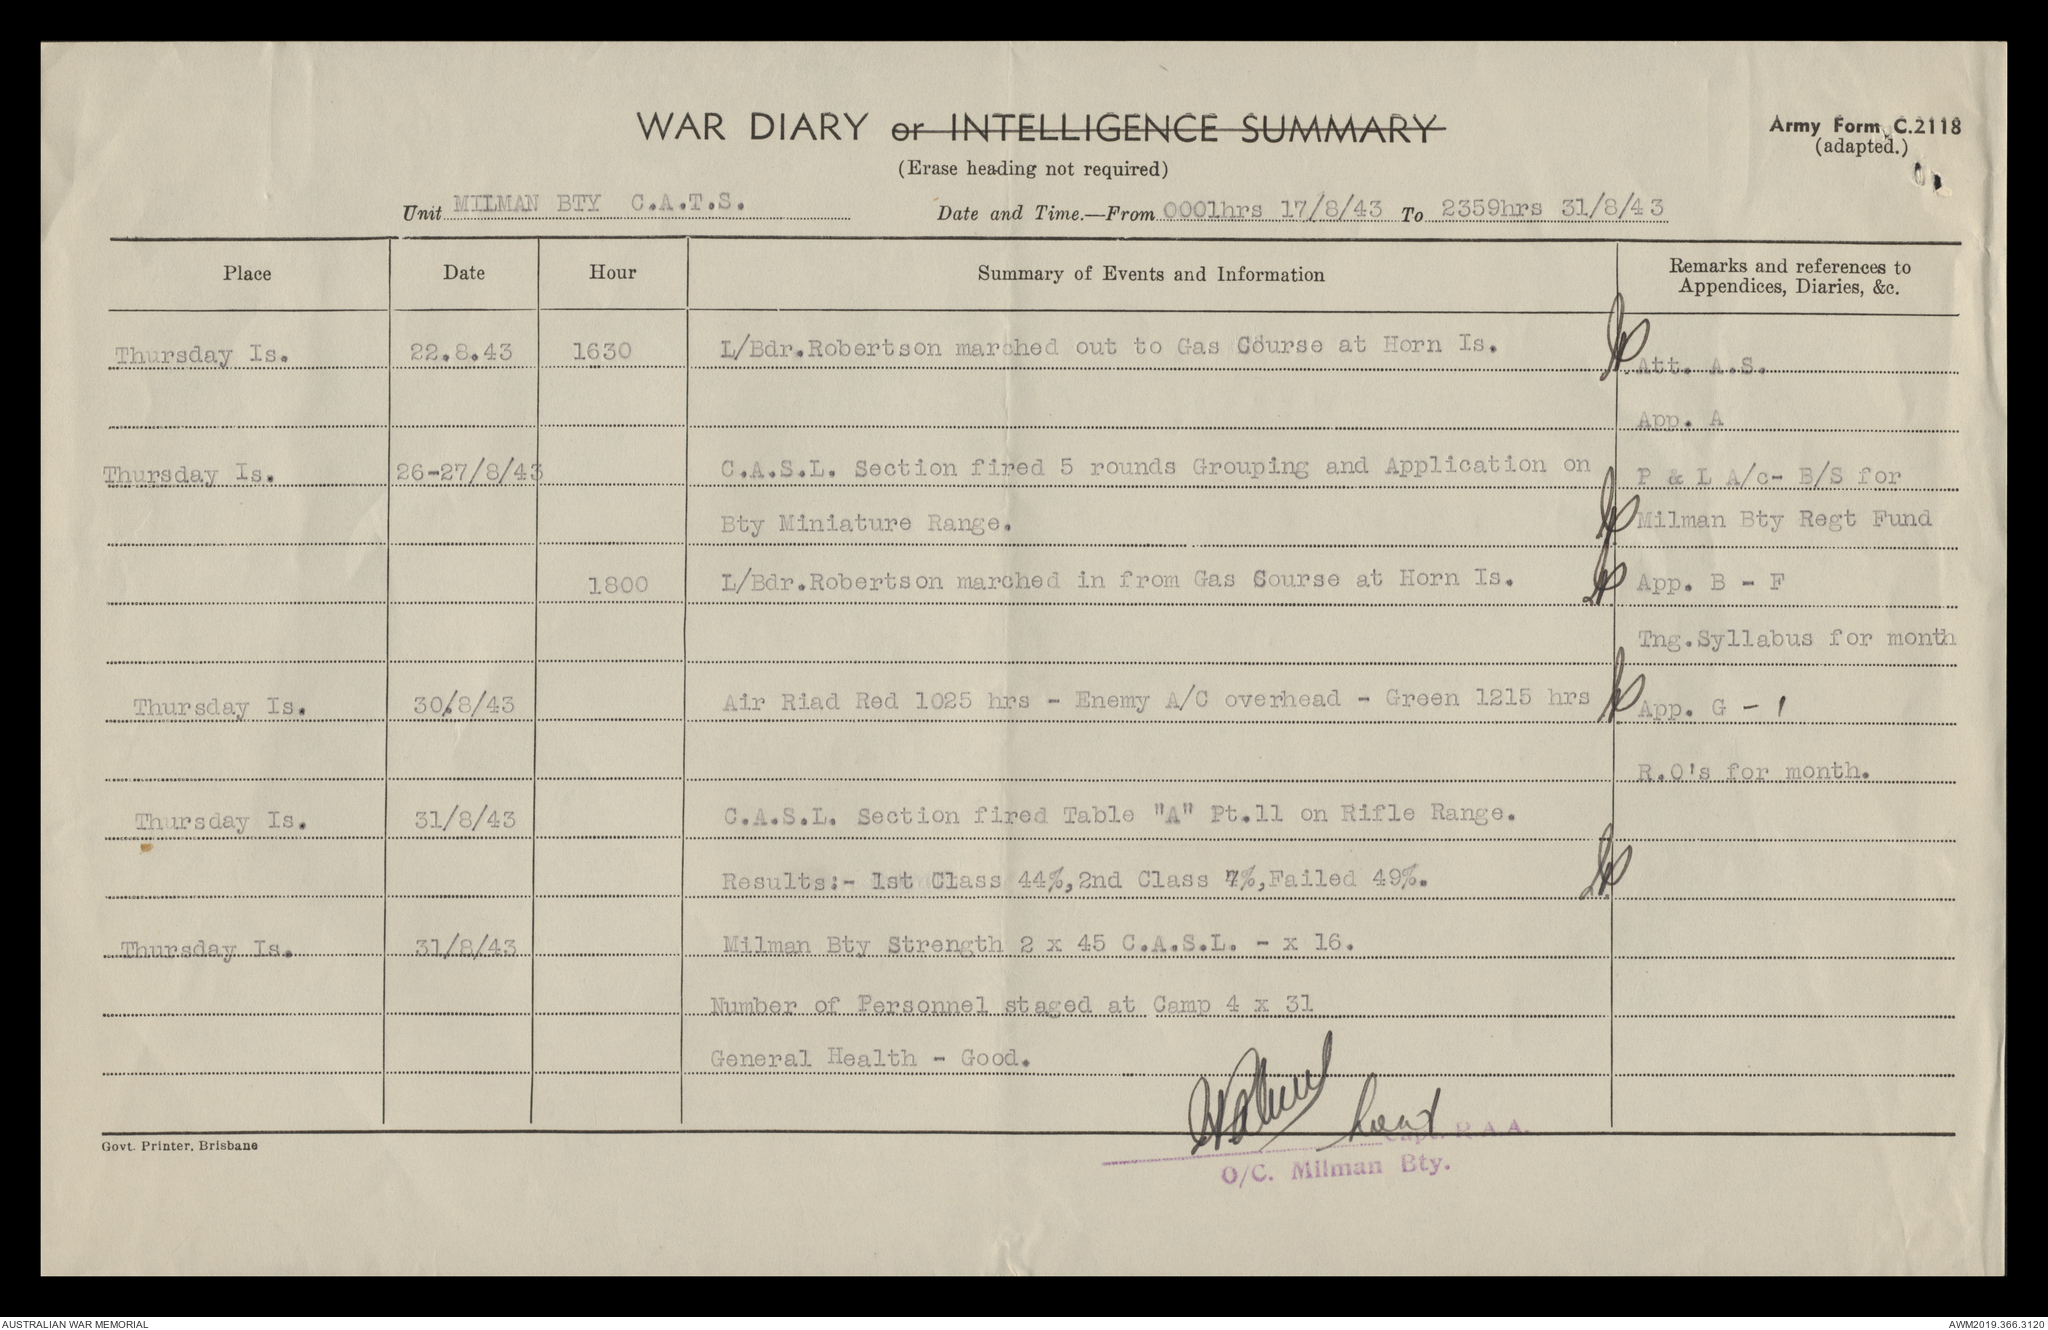 WAR DIARY or INTELLIGENCE SUMMARY
(Erase heading not required)
Army Form C.2118
(adapted.)
Unit MILMAN BTY C.A.T.S.
Date and Time.—From 0001hrs 17/8/43 To 2359hrs 31/8/43
Place Date Hour Summary of Events and Information Remarks and references to
Appendices, Diaries, &c.
Thursday Is. 22.8.43 1630 L/Bdr.Robertson marched out to Gas Course at Horn Is.
Att. A.S.
App. A
Thursday Is. 26-27/8/43 C.A.S.L. Section fired 5 rounds Grouping and Application on P & L A/c- B/S for
Bty Miniature Range. Milman Bty Regt Fund
1800 L/Bdr.Robertson marched in from Gas Course at Horn Is. App. B - F
Tng.Syllabus for month
Thursday Is. 30/8/43 Air Riad Red 1025 hrs - Enemy A/C overhead - Green 1215 hrs App. G - 1
R.O's for month.
Thursday Is. 31/8/43 C.A.S.L. Section fired Table "A" Pt.11 on Rifle Range.
Results:- 1st Class 44%,2nd Class 7%,Failed 49%.
Thursday Is. 31/8/43 Milman Bty Strength 2 x 45 C.A.S.L. - x 16.
Number of Personnel staged at Camp 4 x 31
General Health - Good.
Capt. R.A.A.
O/C. Milman Bty.
Govt. Printer, Brisbane
AUSTRALIAN WAR MEMORIAL
AWM2019.366.3120